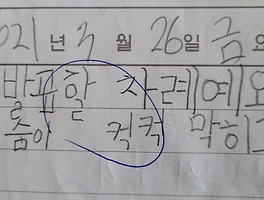 021 년 3 월 26일 금요
발표할 차례예요
숨이 컥컥 막히고